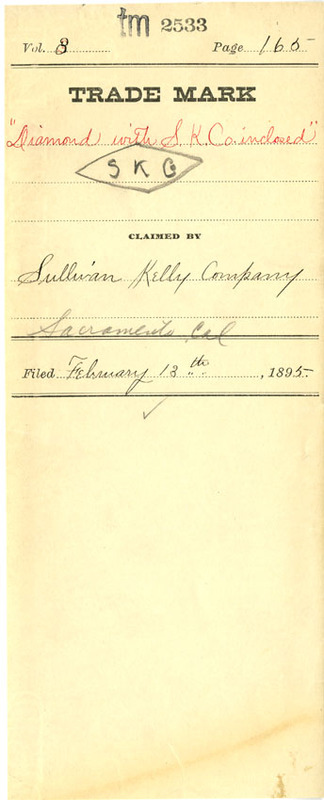 tm 2533
Vol. 3 Page 165
TRADE MARK
"Diamond with S. K. Co. inclosed"
S K C
CLAIMED BY
Sullivan Kelly Company
Sacramento Cal
Filed February 13th, 1895